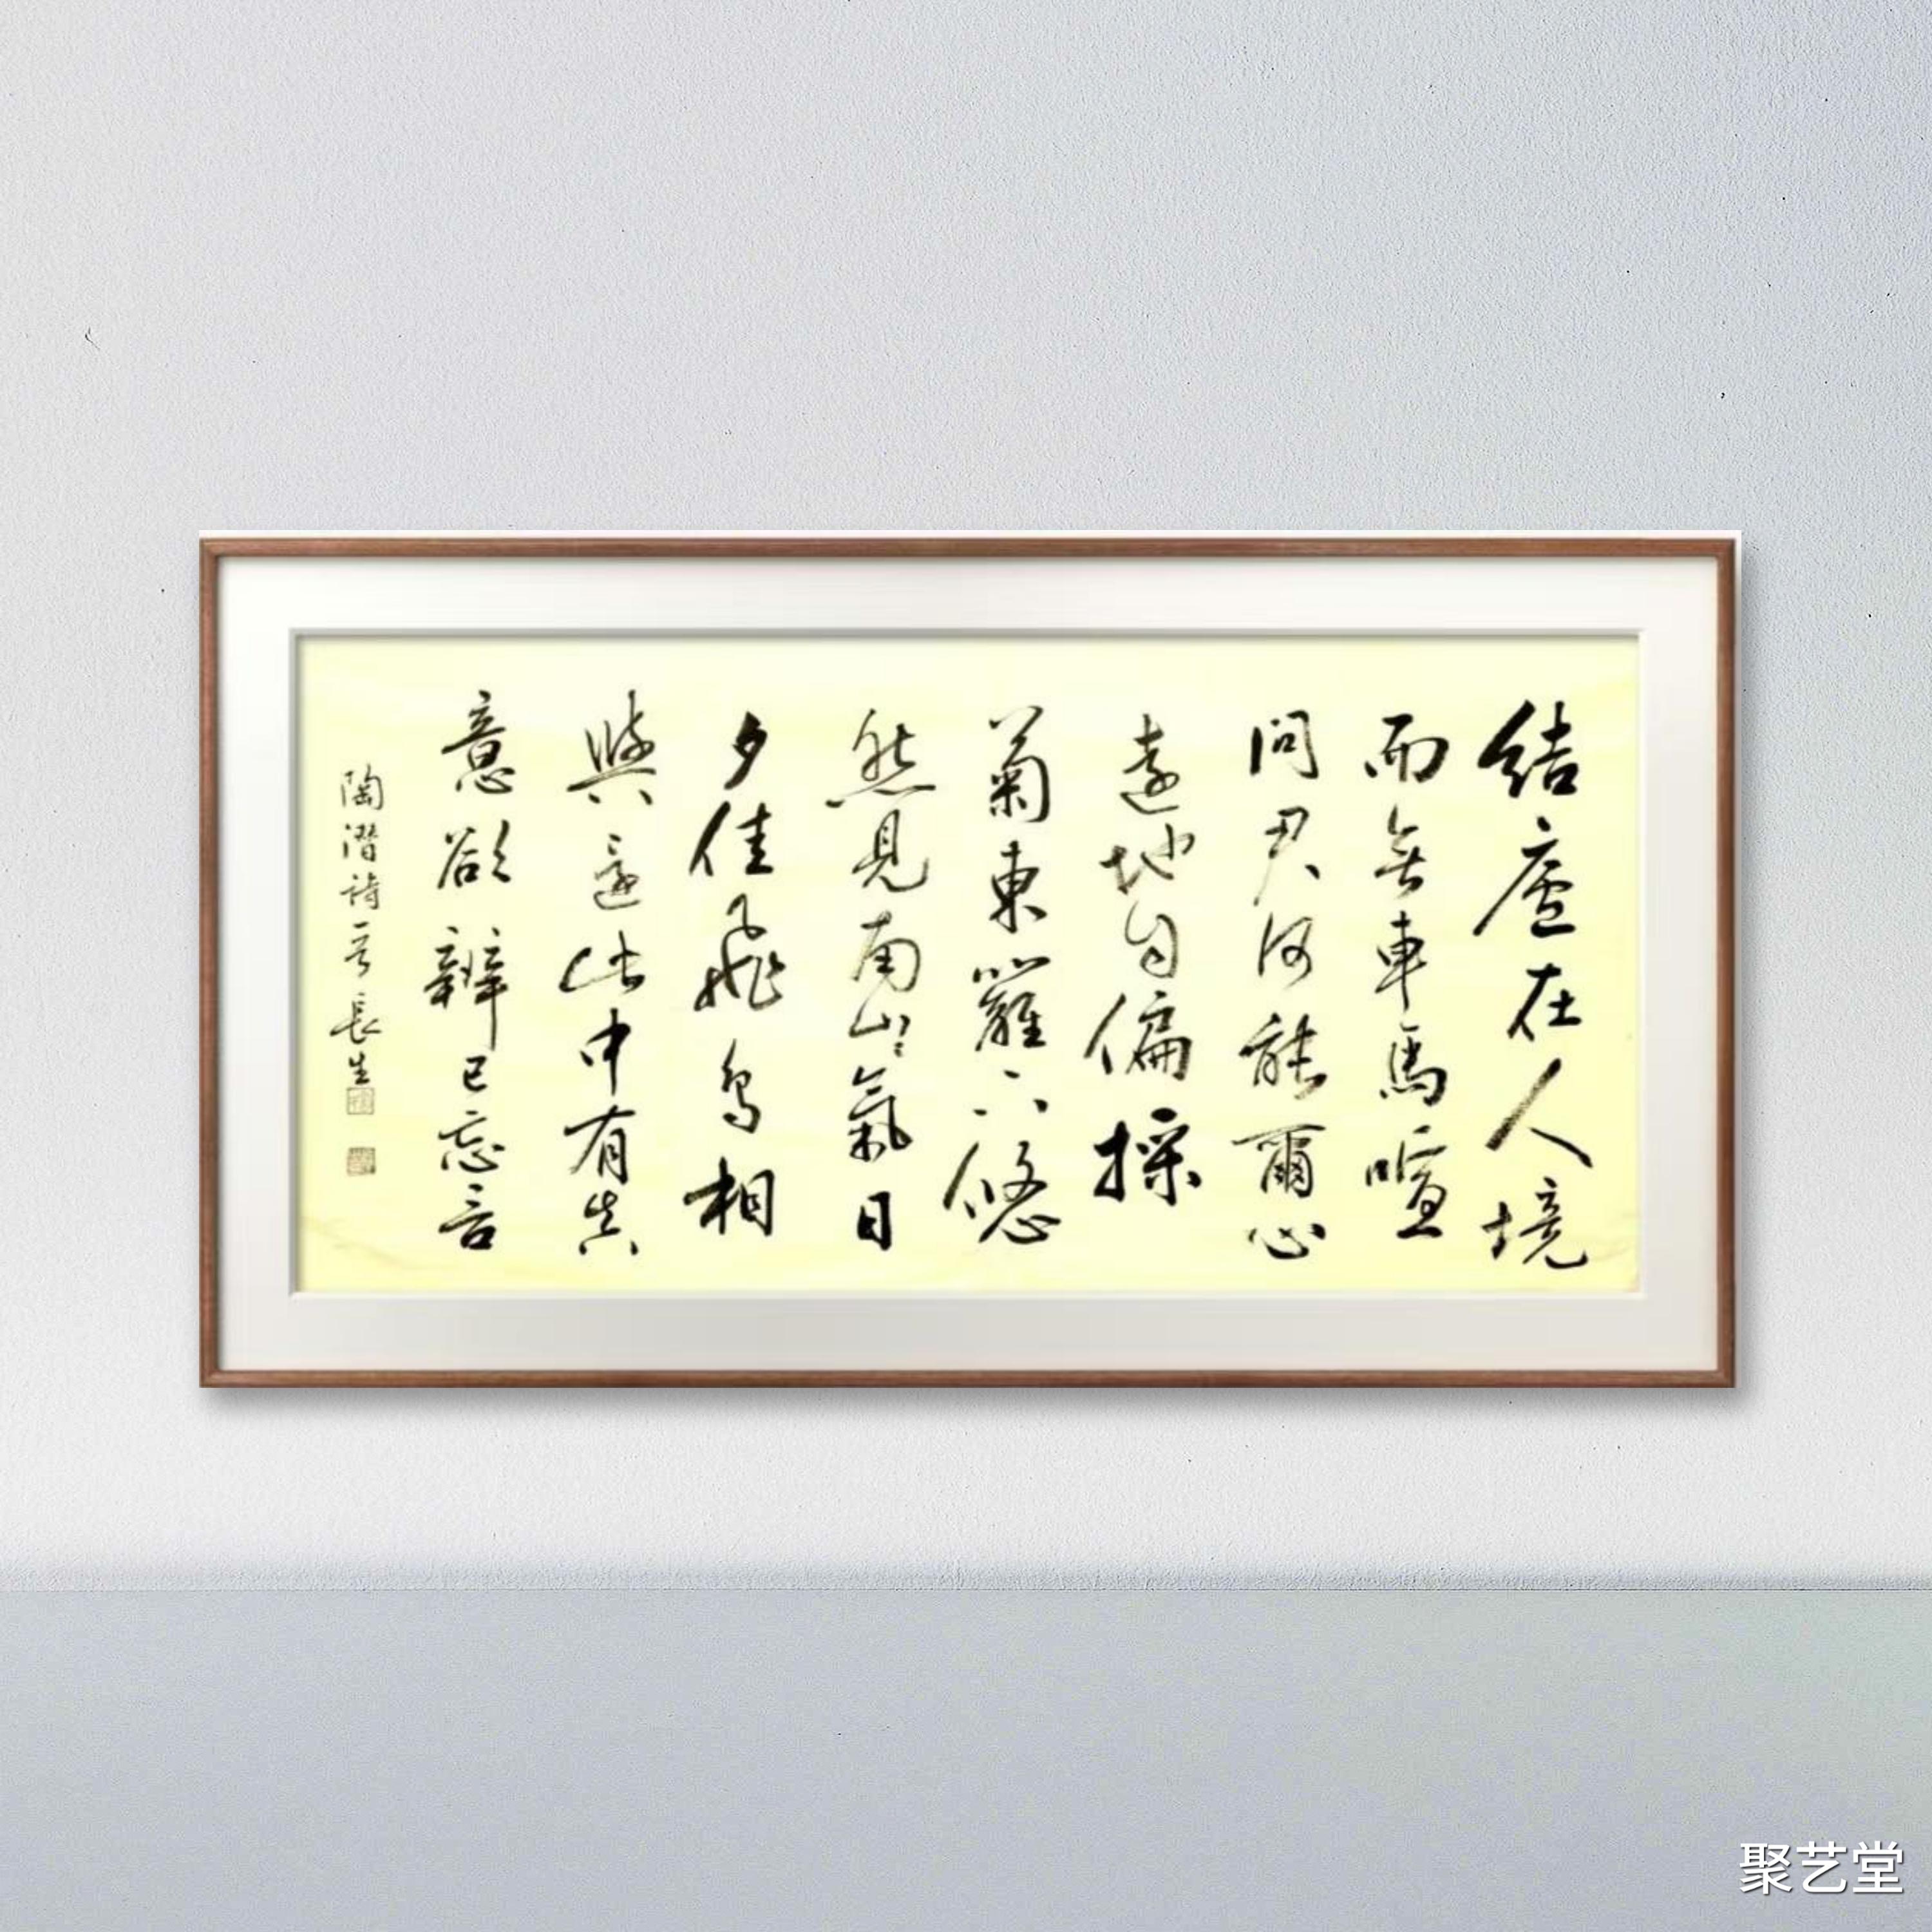 結廬在人境
而無車馬喧
問君何能爾心
遠地自偏採
菊東籬下悠
然見南山〻氣日
夕佳飛鳥相
與還此中有真
意欲辨已忘言
陶潛詩一首長生
聚艺堂